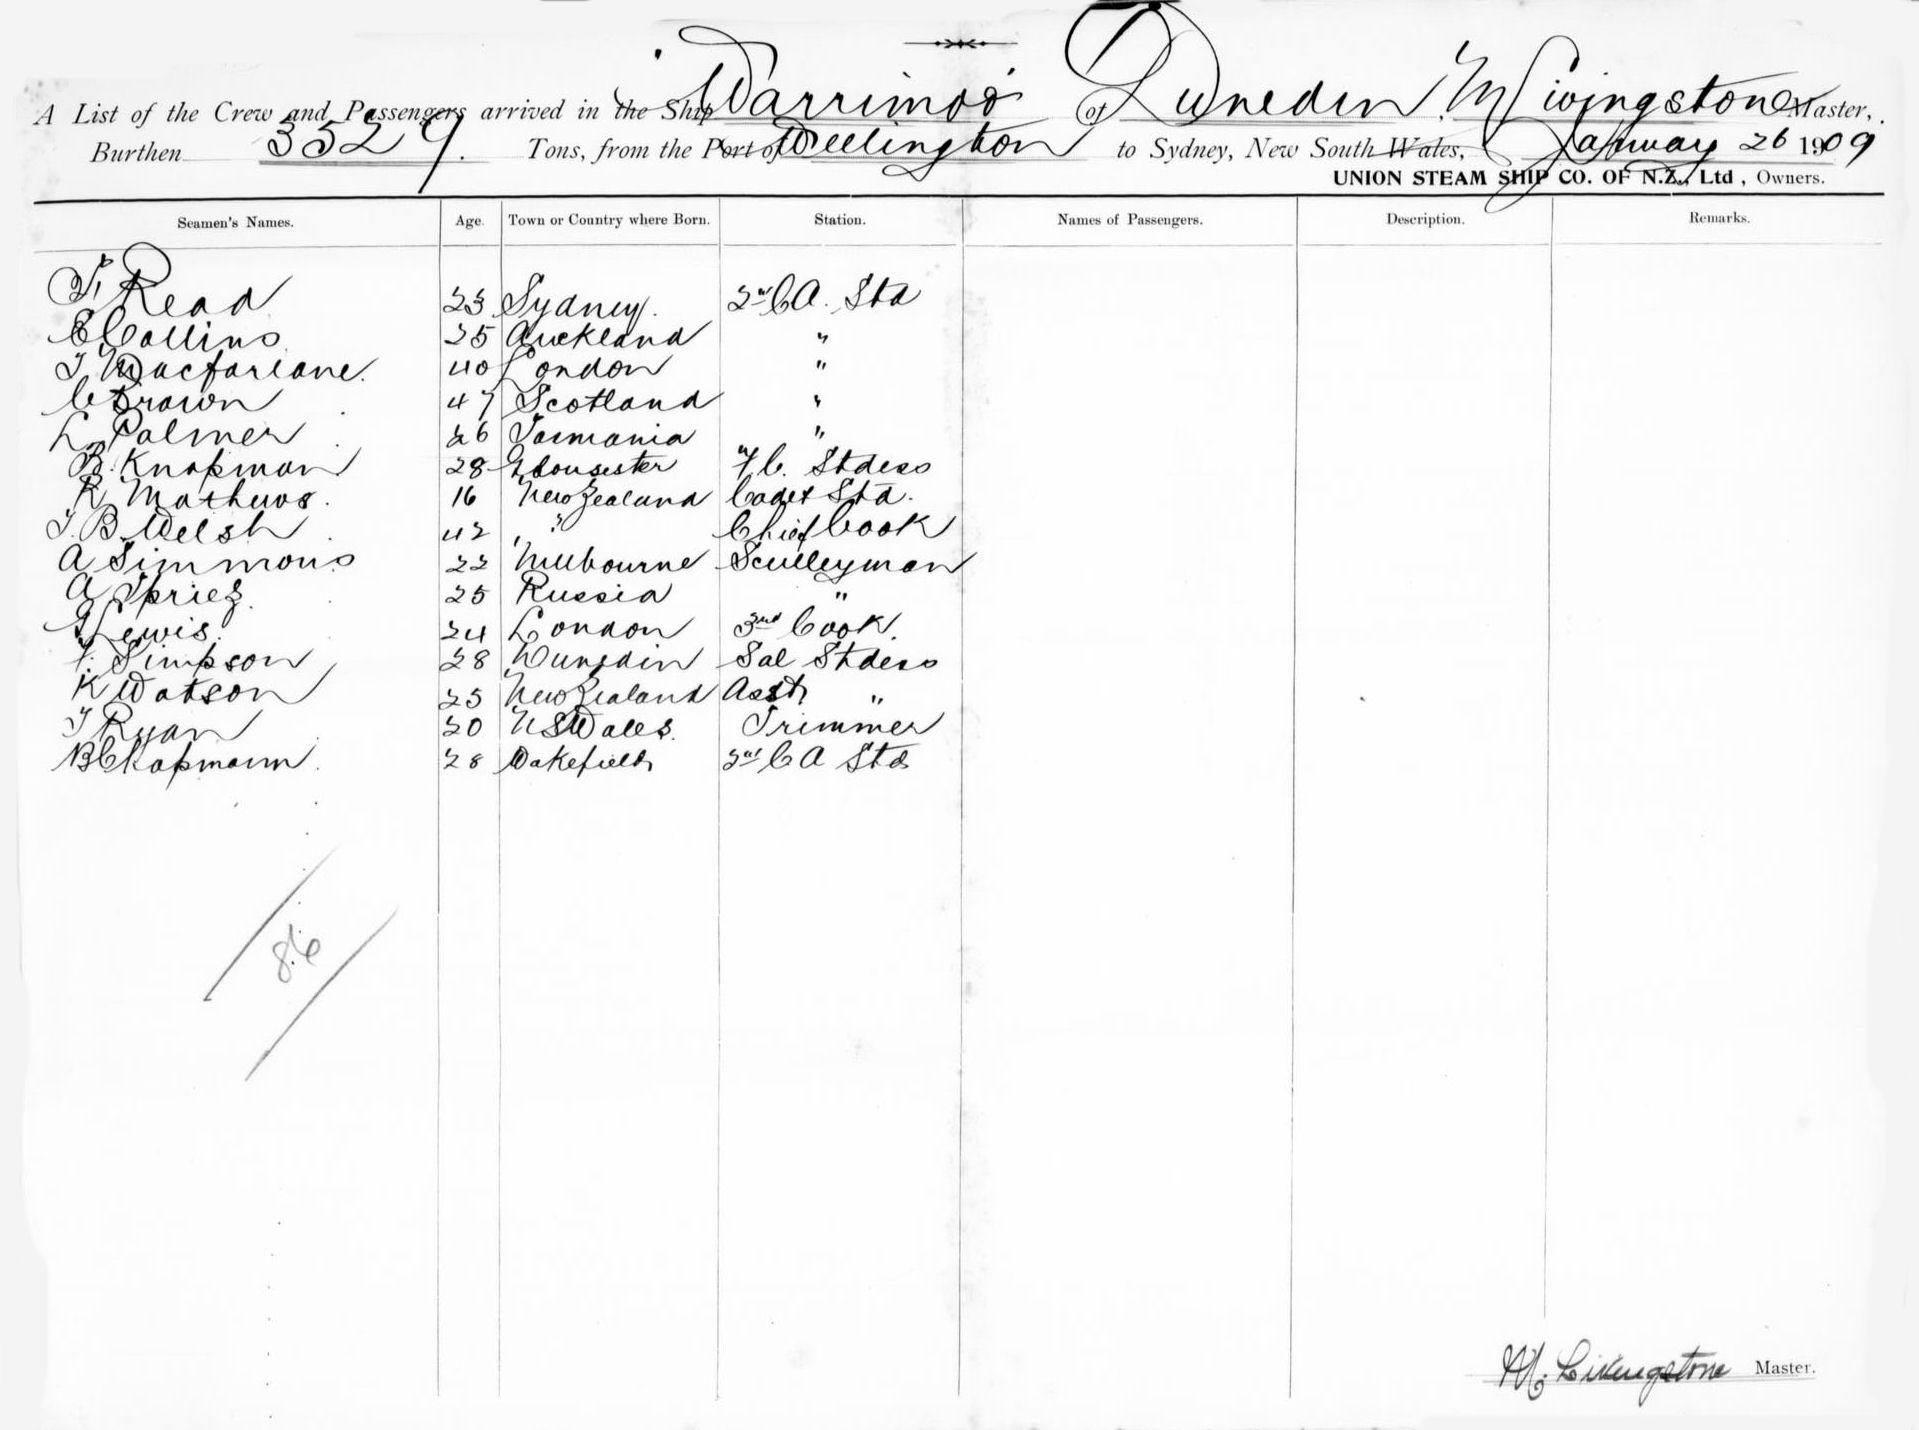 A List of the Crew and Passengers arrived in the Ship Warrimoo of Dunedin, M Livingstone Master,
Burthen 3529 Tons, from the Port of Wellington to Sydney, New South Wales, January 26 1909
UNION STEAM SHIP CO. OF N.Z., Ltd, Owners.
Seamen's Names. Age. Town or Country where Born. Station. Names of Passengers. Description. Remarks.
T. Read 23 Sydney. 2nd C A. Std
E Collins 25 Auckland "
J Macfarlane. 40 London "
C Brown 47 Scotland "
L. Palmer 26 Tasmania "
B. Knapman 28 Gloucester " F C. Stdess
R Mathews. 16 New Zealand Cadet Std.
J. B. Welsh 42 " " Chief Cook
A Simmons 22 Melbourne Sculleyman
A 25 Russia "
Lewis. 24 London 3rd Cook.
Simpson 28 Dunedin Sal Stdess
K Watson 25 New Zealand Asst "
J Ryan 20 N S Wales. Trimmer
B Chapmann. 28 Wakefield 2nd C A Std
86
M. Livingstone Master.